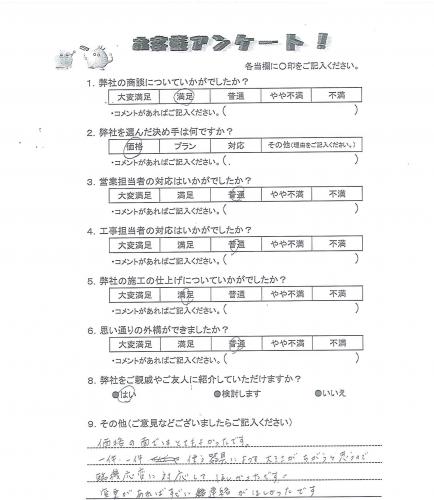 お客様アンケート！
各当欄に〇印をご記入ください。
1. 弊社の商談についていかがでしたか？
大変満足 満足 普通 やや不満 不満
・コメントがあればご記入ください。( )
2. 弊社を選んだ決め手は何ですか？
価格 プラン 対応 その他(理由をご記入ください。)
・コメントがあればご記入ください。( )
3. 営業担当者の対応はいかがでしたか？
大変満足 満足 普通 やや不満 不満
・コメントがあればご記入ください。( )
4. 工事担当者の対応はいかがでしたか？
大変満足 満足 普通 やや不満 不満
・コメントがあればご記入ください。( )
5. 弊社の施工の仕上げについていかがでしたか？
大変満足 満足 普通 やや不満 不満
・コメントがあればご記入ください。( )
6. 思い通りの外構ができましたか？
大変満足 満足 普通 やや不満 不満
・コメントがあればご記入ください。( )
8. 弊社をご親戚やご友人に紹介していただけますか？
●はい ●検討します ●いいえ
9. その他(ご意見などございましたらご記入ください)
価格の面ではとてもよかったです。
一件一件 使う器具によって大きさがちがうと思うので
臨機応変に対応して ほしかったです。
変更があればすぐに連絡がほしかったです